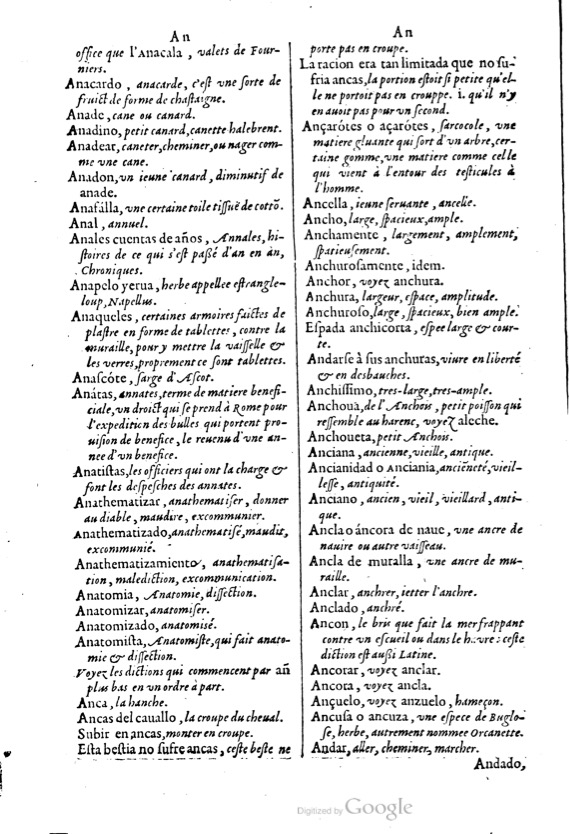 An
office que l'Anacala, valets de Four-
niers.
Anacardo, anacarde, c'est vne sorte de
fruict de forme de chastaigne.
Anade, cane ou canard.
Anadino, petit canard, canette halebrent.
Anadear, caneter, cheminer, ou nager com-
me vne cane.
Anadon, vn ieune canard, diminutif de
anade.
Anafálla, vne certaine toile tissuë de cottõ.
Anal, annuel.
Anales cuentas de años, Annales, hi-
stoires de ce qui s'est passé d'an en an,
Chroniques.
Anapelo yerua, herbe appellee estrangle-
loup, Napellus.
Anaqueles, certaines armoires faictes de
plastre en forme de tablettes, contre la
muraille, pour y mettre la vaisselle &
les verres, proprement ce sont tablettes.
Anascóte, sarge d'Ascot.
Anátas, annates, terme de matiere benefi-
ciale, vn droict qui se prend à Rome pour
l'expedition des bulles qui portent pro-
uision de benefice, le reuenu d'vne an-
nee d'vn benefice.
Anatistas, les officiers qui ont la charge &
font les despesches des annates.
Anathematizar, anathematiser, donner
au diable, maudire, excommunier.
Anathematizado, anathematisé, maudit,
excommunié.
Anathematizamiento, anathematisa-
tion, malediction, excommunication.
Anatomia, Anatomie, dissection.
Anatomizar, anatomiser.
Anatomizado, anatomisé.
Anatomista, Anatomiste, qui fait anato-
mie & dissection.
Voyez les dictions qui commencent par añ
plus bas en vn ordre à part.
Anca, la hanche.
Ancas del cauallo, la croupe du cheual.
Subir en ancas, monter en croupe.
Esta bestia no sufre ancas, ceste beste ne
An
porte pas en croupe.
La racion era tan limitada que no su-
fria ancas, la portion estoit si petite qu'el-
le ne portoit pas en crouppe. i. qu'il n'y
en auoit pas pour vn second.
Ançarótes o açarótes, sarcocole, vne
matiere gluante qui sort d'vn arbre, cer-
taine gomme, vne matiere comme celle
qui vient à l'entour des testicules à
l'homme.
Ancella, ieune seruante, ancelle.
Ancho, large, spacieux, ample.
Anchamente, largement, amplement,
spatieusement.
Anchurosamente, idem.
Anchor, voyez anchura.
Anchura, largeur, espace, amplitude.
Anchuroso, large, spacieux, bien ample.
Espada anchicorta, espee large & cour-
te.
Andarse à sus anchuras, viure en liberté
& en desbauches.
Anchissimo, tres-large, tres-ample.
Anchoùa, de l'Anchois, petit poisson qui
ressemble au harenc, voyez aleche.
Anchoueta, petit Anchois.
Anciana, ancienne, vieille, antique.
Ancianidad o Anciania, anciëneté, vieil-
lesse, antiquité.
Anciano, ancien, vieil, vieillard, anti-
que.
Ancla o áncora de naue, vne ancre de
nauire ou autre vaisseau.
Ancla de muralla, vne ancre de mu-
raille.
Anclar, anchrer, ietter l'anchre.
Anclado, anchré.
Ancon, le bris que fait la mer frappant
contre vn escueil ou dans le havre: ceste
diction est aussi Latine.
Ancorar, voyez anclar.
Ancora, voyez ancla.
Ançuelo, voyez anzuelo, hameçon.
Ancusa o ancuza, vne espece de Buglo-
se, herbe, autrement nommee Orcanette.
Andar, aller, cheminer, marcher.
Andado,
Digitized by Google